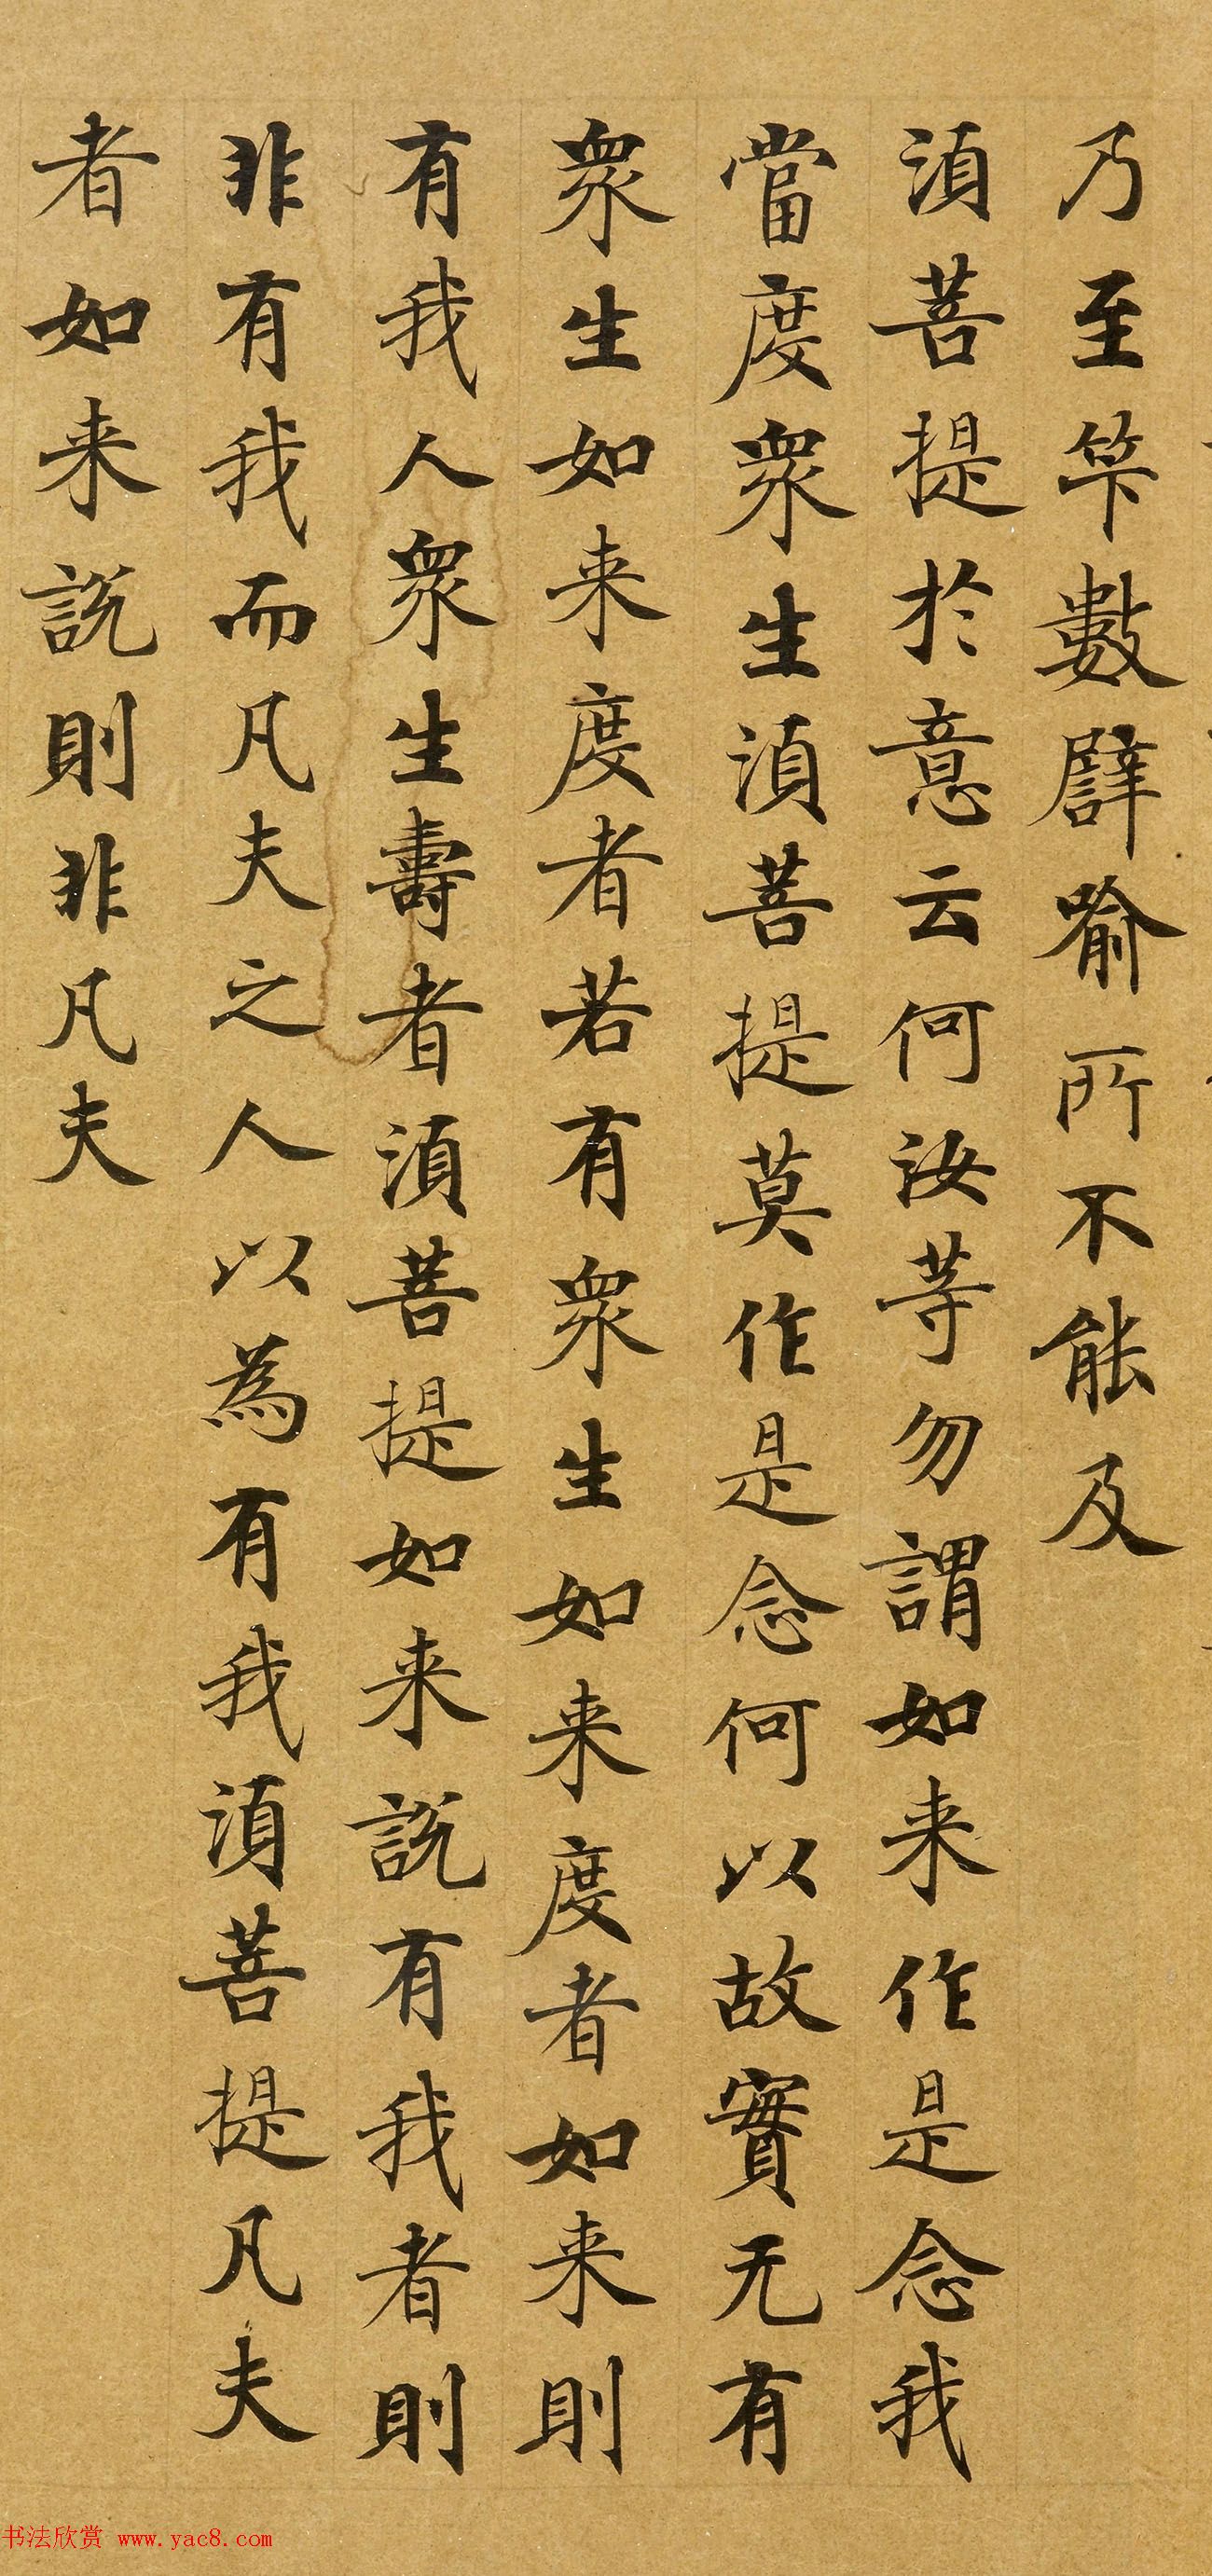 乃至笇數譬喻所不能及
湏菩提於意云何汝等勿謂如来作是念我
當度衆生湏菩提莫作是念何以故實无有
衆生如来度者若有衆生如来度者如来則
有我人衆生壽者湏菩提如来說有我者則
非有我而凡夫之人以為有我湏菩提凡夫
者如来說則非凡夫
书法欣赏 www.yac8.com